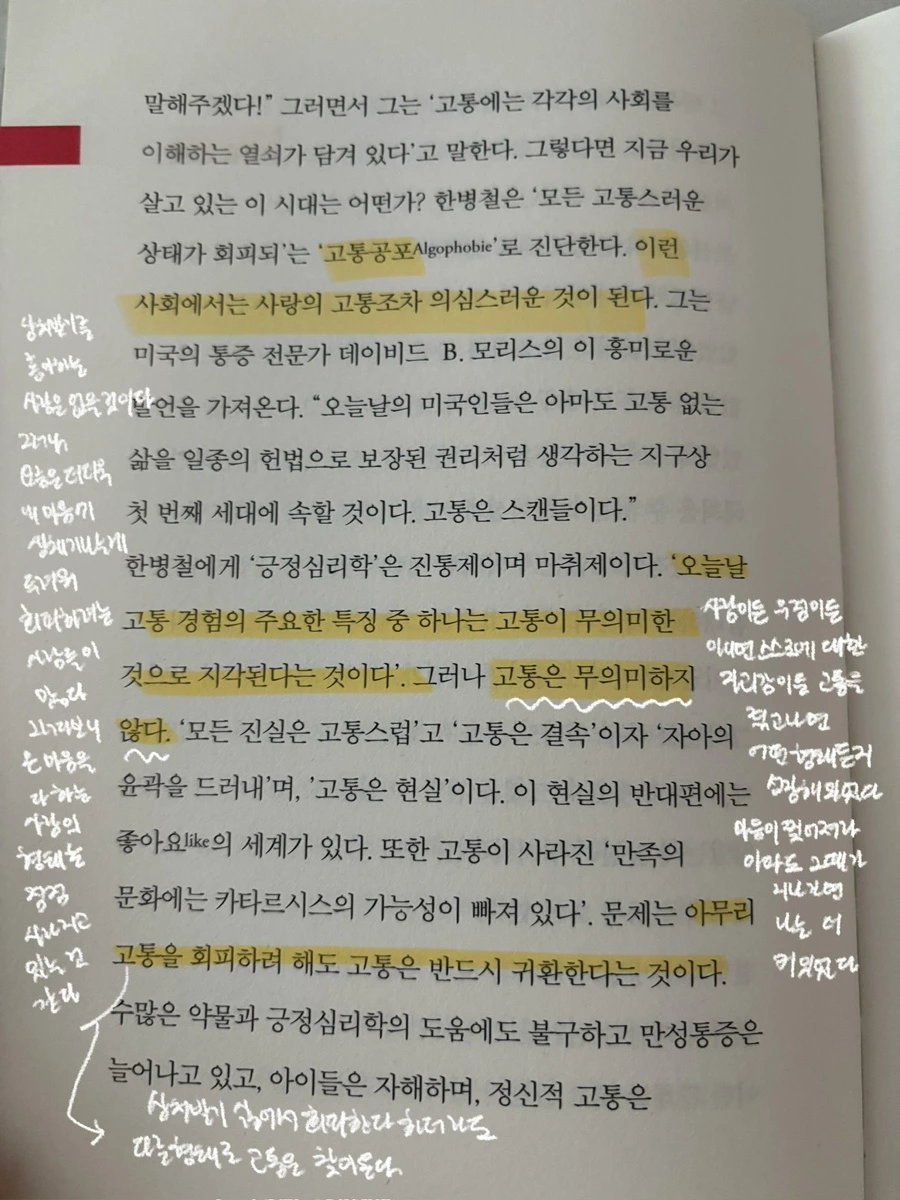 말해주겠다!” 그러면서 그는 ‘고통에는 각각의 사회를
이해하는 열쇠가 담겨 있다’고 말한다. 그렇다면 지금 우리가
살고 있는 이 시대는 어떤가? 한병철은 ‘모든 고통스러운
상태가 회피되’는 ‘고통공포Algophobie’로 진단한다. 이런
사회에서는 사랑의 고통조차 의심스러운 것이 된다. 그는
미국의 통증 전문가 데이비드 B. 모리스의 이 흥미로운
발언을 가져온다. “오늘날의 미국인들은 아마도 고통 없는
삶을 일종의 헌법으로 보장된 권리처럼 생각하는 지구상
첫 번째 세대에 속할 것이다. 고통은 스캔들이다.”
한병철에게 ‘긍정심리학’은 진통제이며 마취제이다. ‘오늘날
고통 경험의 주요한 특징 중 하나는 고통이 무의미한
것으로 지각된다는 것이다’. 그러나 고통은 무의미하지
않다. ‘모든 진실은 고통스럽’고 ‘고통은 결속’이자 ‘자아의
윤곽을 드러내’며, ’고통은 현실’이다. 이 현실의 반대편에는
좋아요like의 세계가 있다. 또한 고통이 사라진 ‘만족의
문화에는 카타르시스의 가능성이 빠져 있다’. 문제는 아무리
고통을 회피하려 해도 고통은 반드시 귀환한다는 것이다.
수많은 약물과 긍정심리학의 도움에도 불구하고 만성통증은
늘어나고 있고, 아이들은 자해하며, 정신적 고통은
상처받기를
좋아하는
사람은 없을 것이다
그러나,
요즘은 더더욱
내 마음에
생채기나는게
두려워
회피하려는
사람들이
많다
그러다보니
온 마음을
다하는
사랑의
형태는
점점
사라지고
있는 것
같다
사랑이든 우정이든
아니면 스스로에 대한
괴리감이든 고통을
겪고나면
어떤형태든지
성장해있었다
마음이 찢어져라
아파도 그때가
지나가면
나는 더
커있었다
상처받기 싫어서 회피한다 하더라도
다른형태로 고통은 찾아온다.